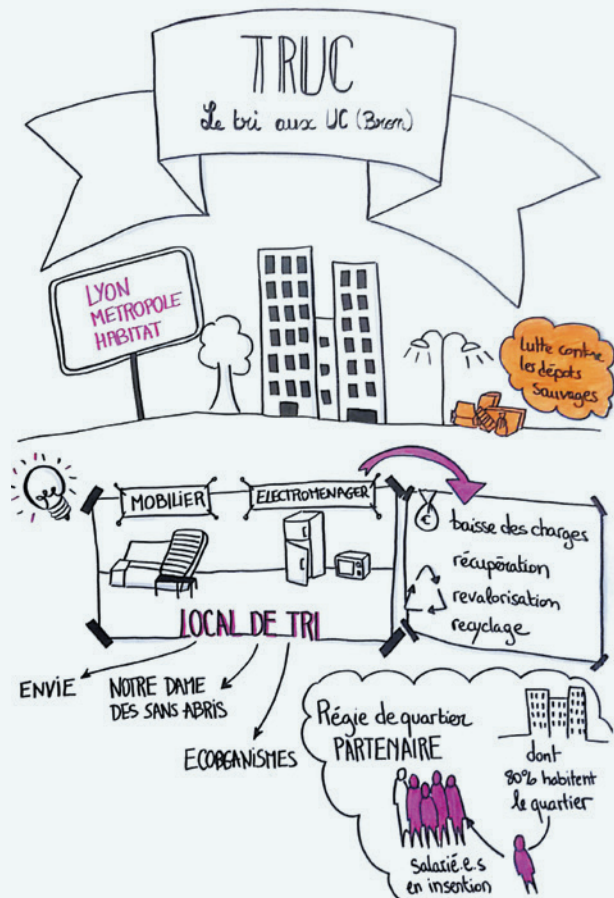 TRUC
Le tri aux UC (Bron)
LYON
METROPOLE
HABITAT
Lutte contre
les dépots
sauvages
MOBILIER
ELECTROMENAGER
€ baisse des charges
récupération
revalorisation
recyclage
LOCAL DE TRI
ENVIE
NOTRE DAME
DES SANS ABRIS
ECOORGANISMES
Régie de quartier
PARTENAIRE
dont
80% habitent
le quartier
salarié.e.s
en insertion